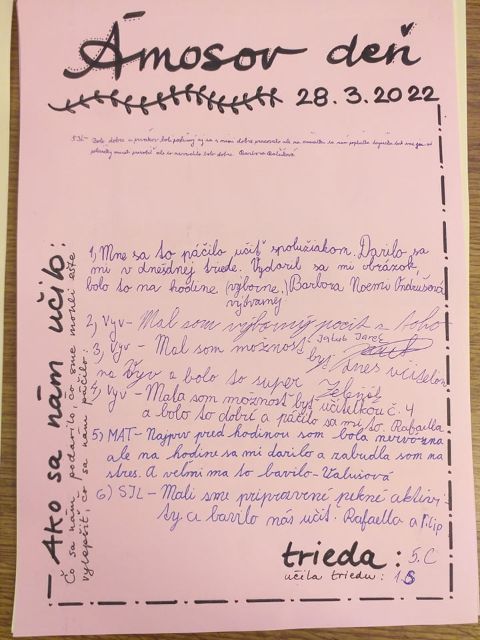 Ámosov deň
28.3.2022
SJL - Bolo dobre
1, Mne sa to páčilo učiť spolužiakom. Darilo sa
mi v dnešdnej triede. Vydaril sa mi obrázok,
bolo to na hodine (výborne.) Barbora Noemi Ondrušová
výtvarnej
2, Vyv - Mal som výborný pocit z toho
Jakub Jarek
3, Vyv - Mal som možnosť byť dnes učitelom
na Vyv a bolo to super
4, Vyv - Mala som možnosť byť učitelkou č. 4
a bolo to dobrí a páčilo sa mi to. Rafaella
5) MAT - Najprv pred hodinou som bola nervózna
ale na hodine sa mi darilo a zabudla som na
stres. A veľmi ma to bavilo - Valušová
6) SJL - Mali sme pripravené pekné aktivi-
ty a bavilo nás učiť. Rafaella a Filip
- Ako sa nám učilo:
Čo sa nám podarilo, čo sme mohli ešte
vylepšiť, čo sa nám páčilo...
trieda: 5.C
učila triedu: 1.B